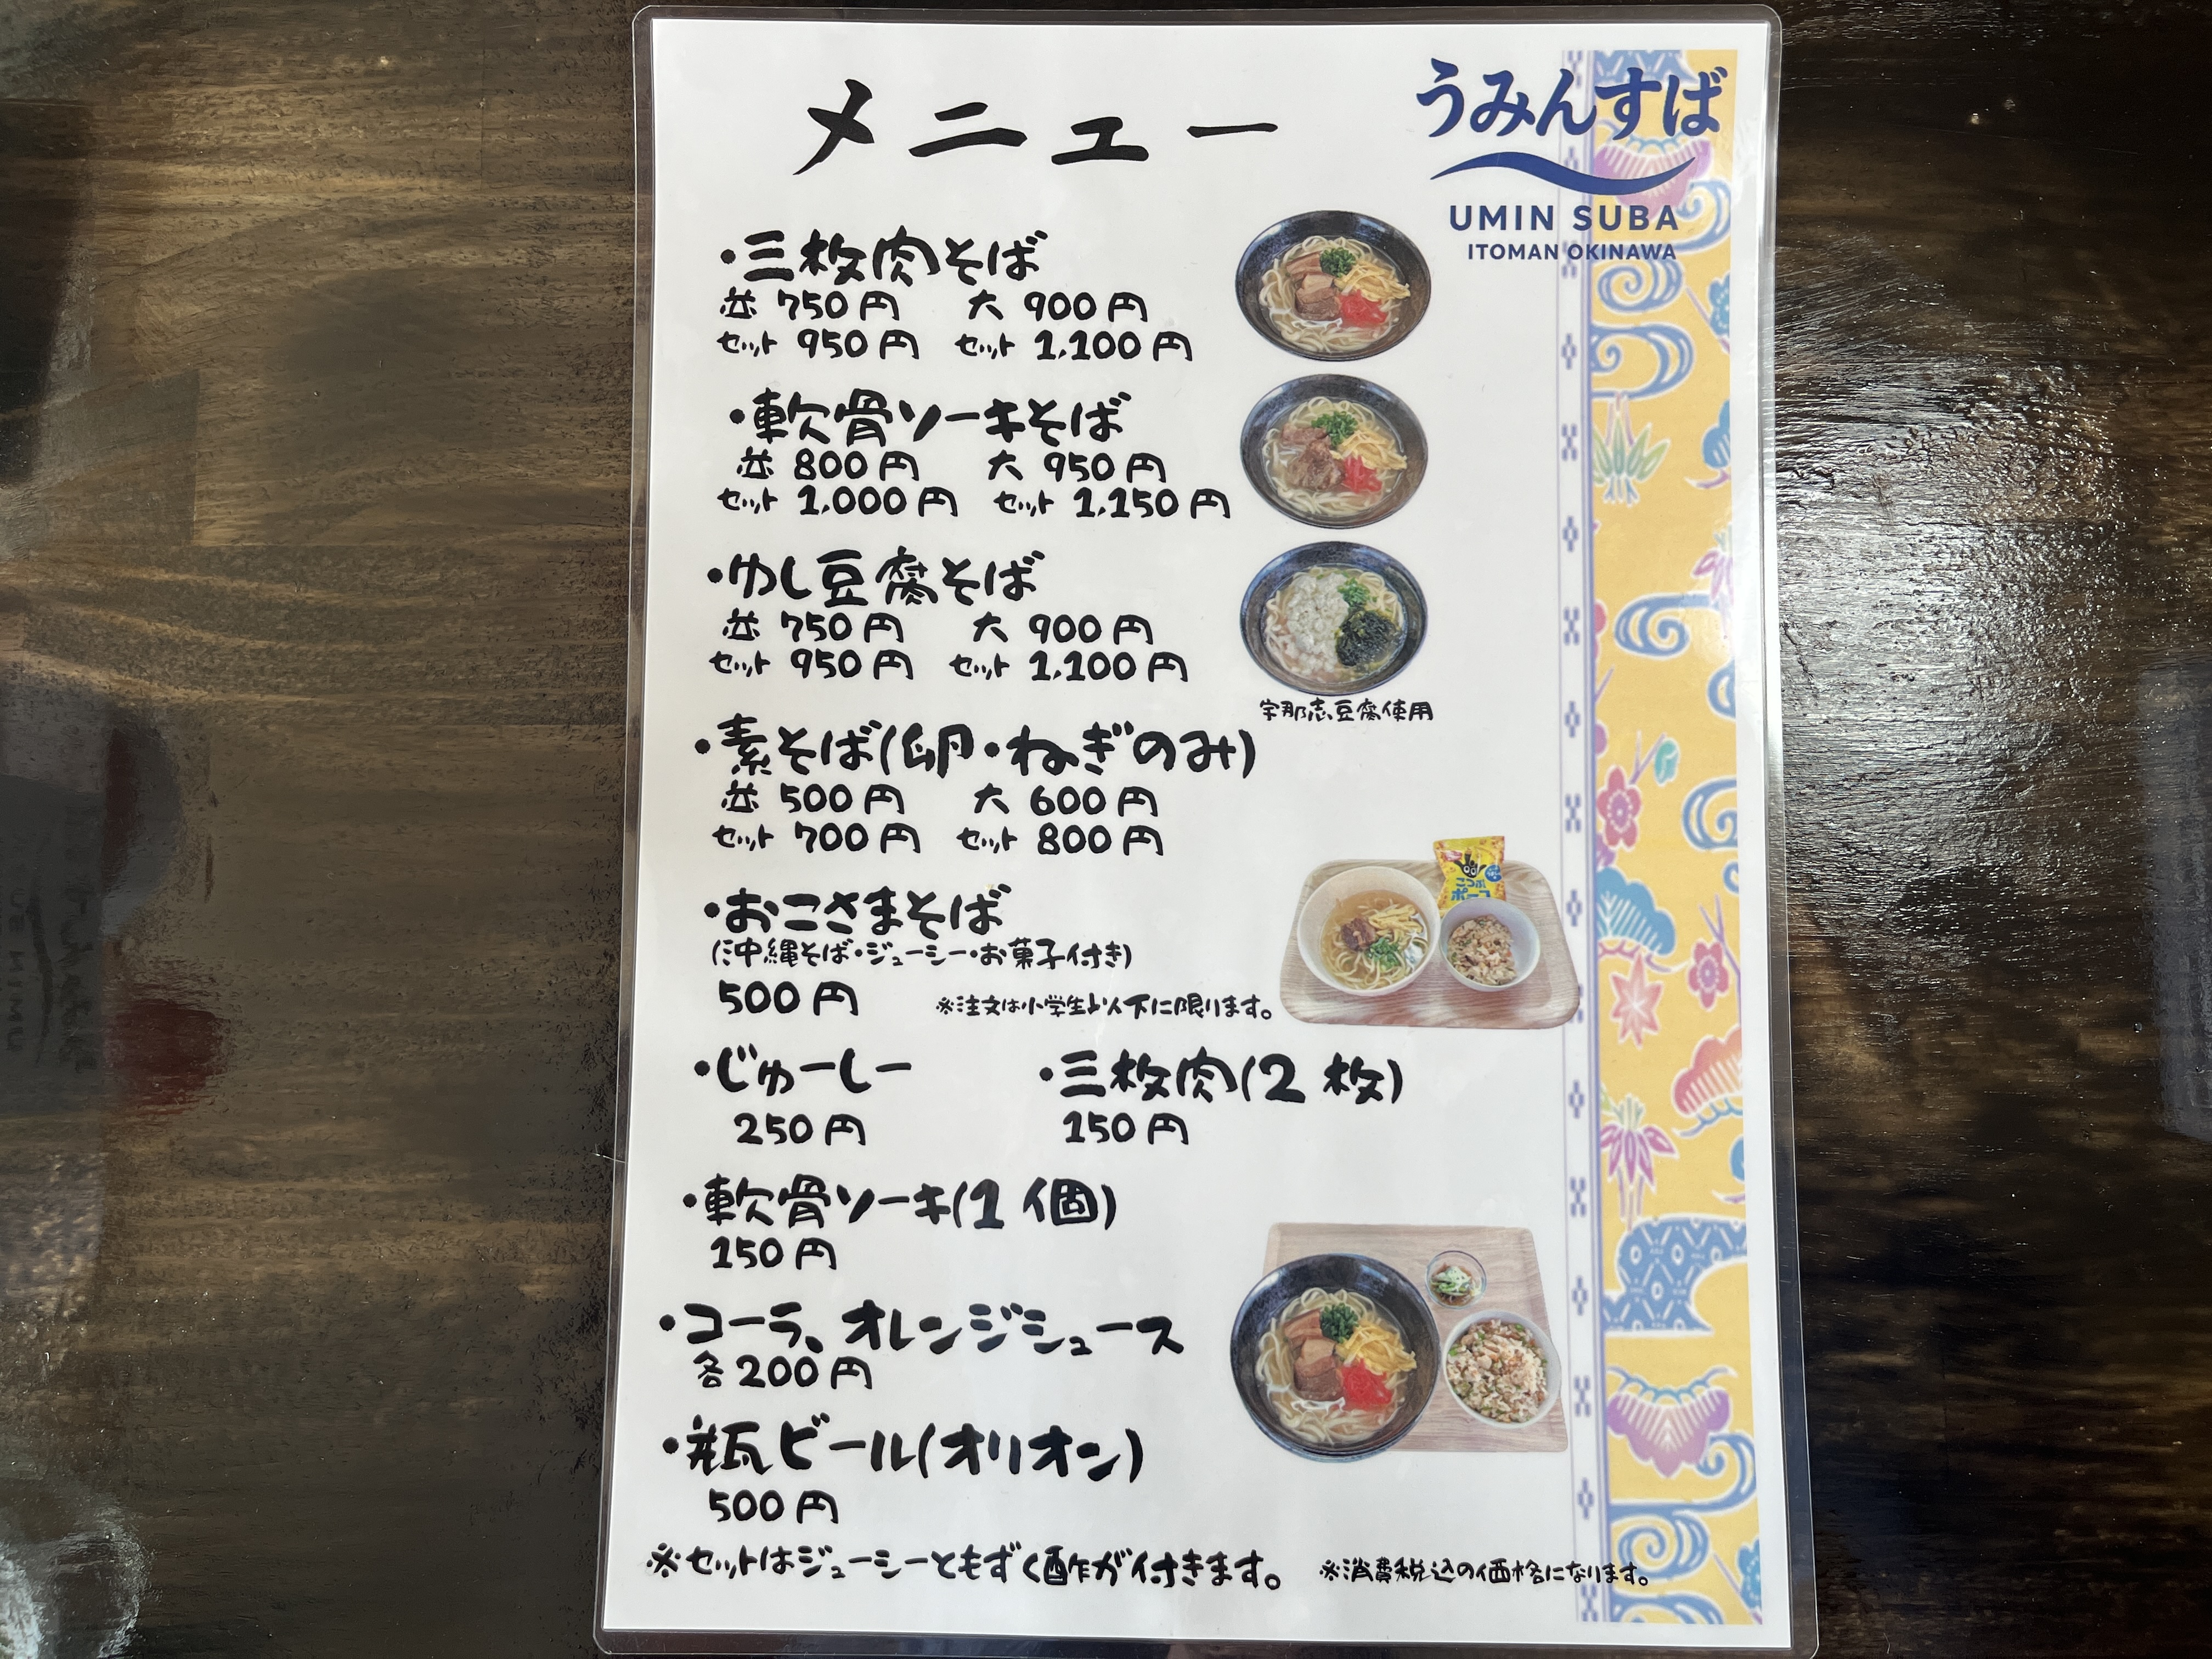 メニュー
うみんすば
UMIN SUBA
ITOMAN OKINAWA
・三枚肉そば
並 750円 大 900円
セット 950円 セット 1,100円
・軟骨ソーキそば
並 800円 大 950円
セット 1,000円 セット 1,150円
・ゆし豆腐そば
並 750円 大 900円
セット 950円 セット 1,100円
宇那志豆腐使用
・素そば(卵・ねぎのみ)
並 500円 大 600円
セット 700円 セット 800円
・おこさまそば
(沖縄そば・ジューシー・お菓子付き)
500円 ※注文は小学生以下に限ります。
・じゅーしー ・三枚肉(2枚)
250円 150円
・軟骨ソーキ(1個)
150円
・コーラ、オレンジジュース
各200円
・瓶ビール(オリオン)
500円
※セットはジューシーともずく酢が付きます。 ※消費税込の価格になります。